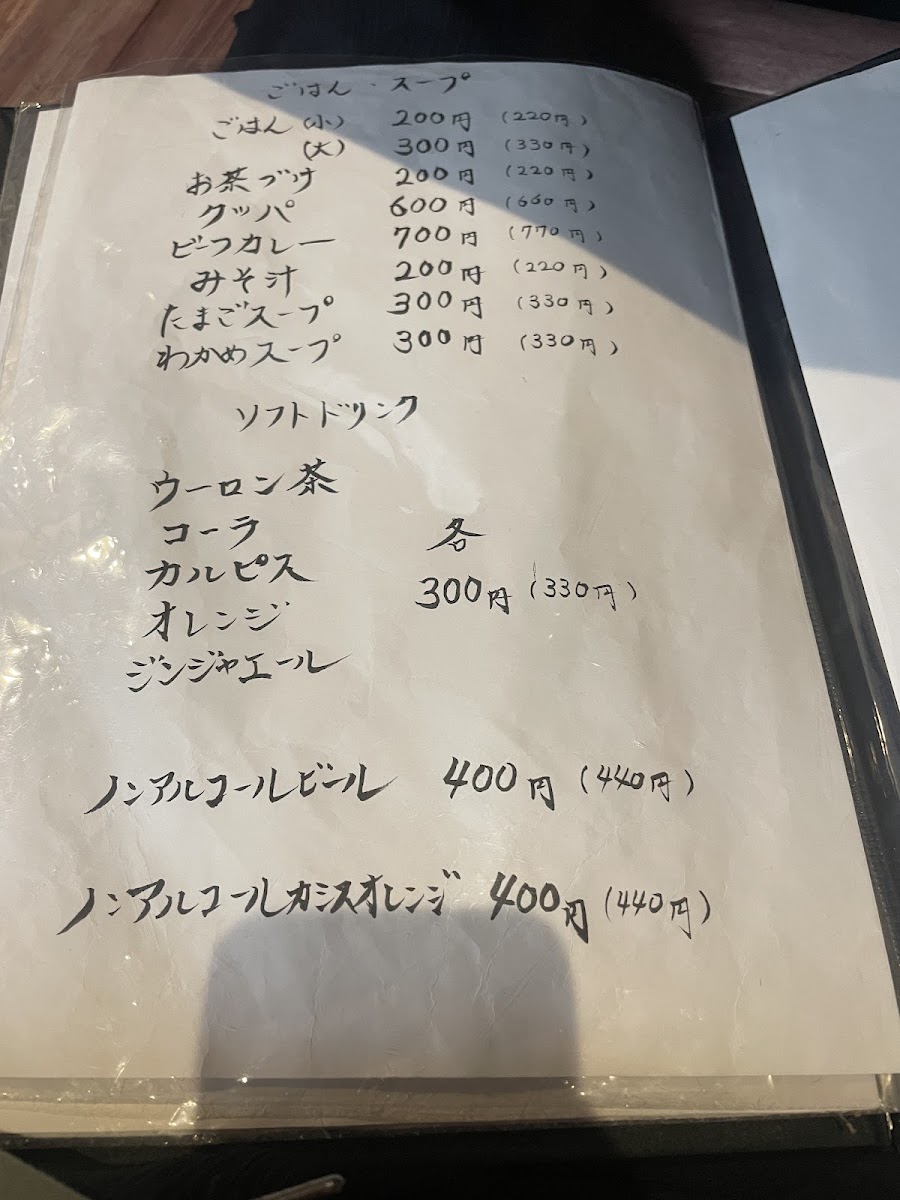 ごはん・スープ
ごはん(小) 200円 (220円)
(大) 300円 (330円)
お茶づけ 200円 (220円)
クッパ 600円 (660円)
ビーフカレー 700円 (770円)
みそ汁 200円 (220円)
たまごスープ 300円 (330円)
わかめスープ 300円 (330円)
ソフトドリンク
ウーロン茶
コーラ 各
カルピス 300円 (330円)
オレンジ
ジンジャエール
ノンアルコールビール 400円 (440円)
ノンアルコールカシスオレンジ 400円 (440円)